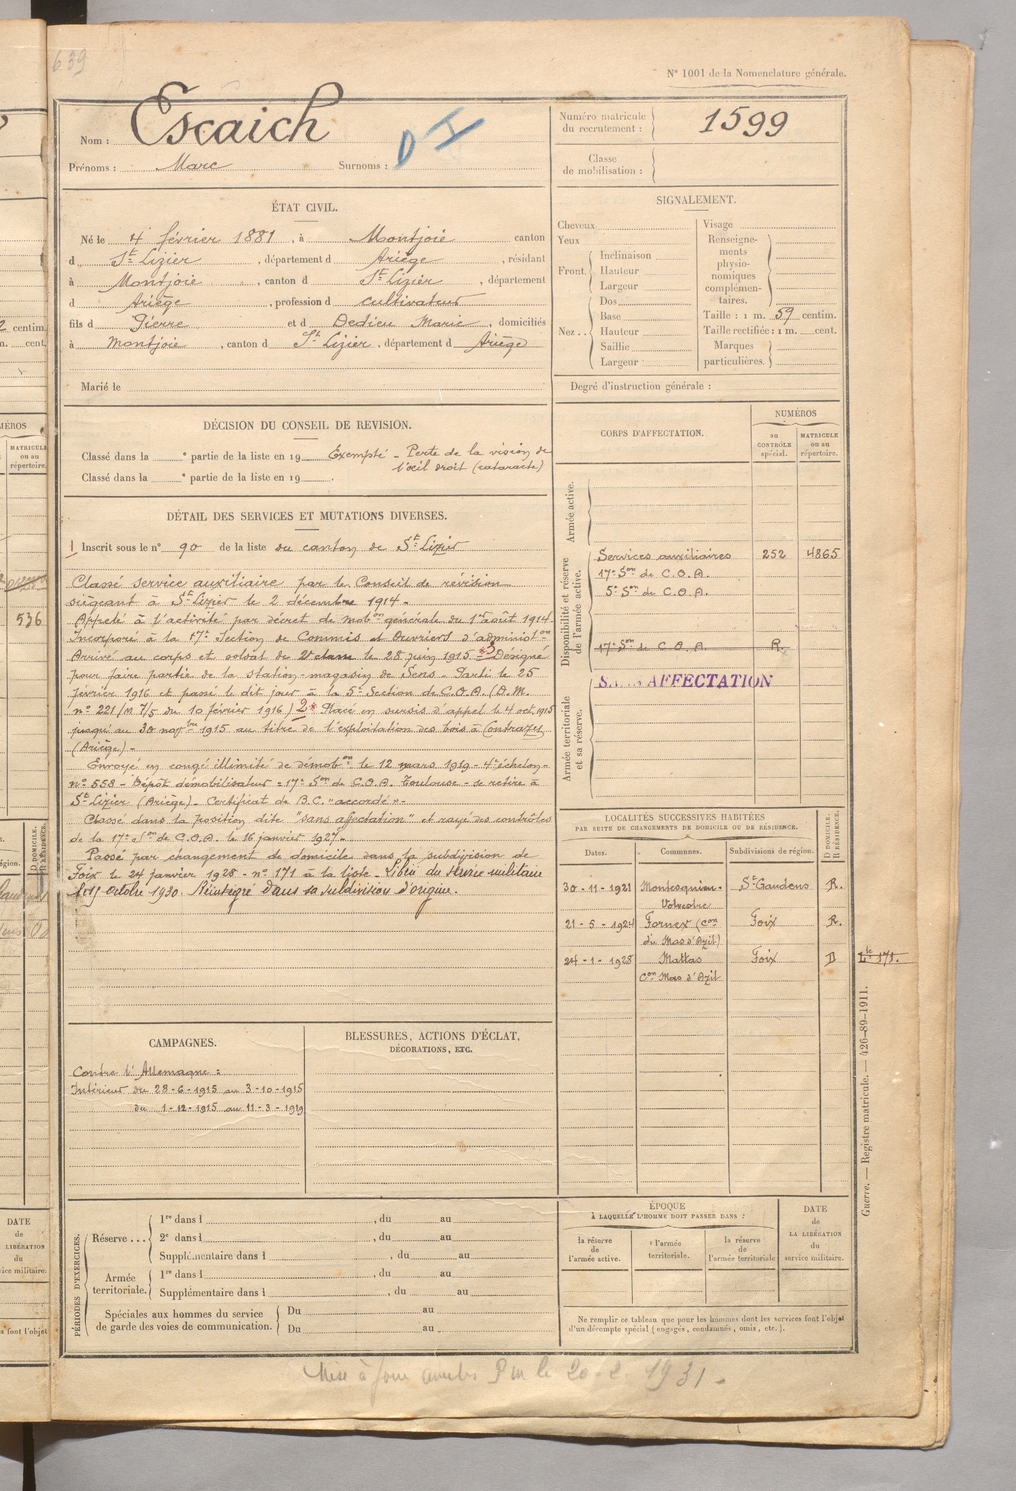 639
N° 1001 de la Nomenclature générale.
Nom : Escaich
D I
Prénoms : Marc Surnoms :
Numéro matricule du recrutement : 1599
Classe de mobilisation :
ÉTAT CIVIL.
Né le 4 février 1881, à Montjoie canton
d St Lizier, département d Ariège, résidant
à Montjoie, canton d St Lizier, département
d Ariège, profession d cultivateur
fils d Pierre et d Dedieu Marie, domiciliés
à Montjoie, canton d St Lizier, département d Ariège
Marié le
SIGNALEMENT.
Cheveux
Yeux
Front.
Inclinaison
Hauteur
Largeur
Nez..
Dos
Base
Hauteur
Saillie
Largeur
Visage
Renseigne-
ments
physio-
nomiques
complémen-
taires.
Taille : 1 m. 59 centim.
Taille rectifiée : 1 m. cent.
Marques
particulières.
Degré d'instruction générale :
DÉCISION DU CONSEIL DE REVISION.
Classé dans la e partie de la liste en 19 Exempté - Perte de la vision de
l'œil droit (cataracte)
Classé dans la e partie de la liste en 19 .
DÉTAIL DES SERVICES ET MUTATIONS DIVERSES.
1 Inscrit sous le n° 90 de la liste du canton de St Lizier
Classé service auxiliaire par le Conseil de révision
siégeant à St Lizier le 2 décembre 1914.
Appelé à l'activité par décret de mobon générale du 1er août 1914.
Incorporé à la 17e Section de Commis et Ouvriers d'administon
Arrivé au corps et soldat de 2e classe le 28 juin 1915 *3 Désigné
pour faire partie de la station-magasin de Sens. Parti le 25
février 1916 et passé le dit jour à la 5e Section de C.O.A. (D.M.
n° 221/M 7/5 du 10 février 1916) 2* Placé en sursis d'appel le 4 oct. 1915
jusqu'au 30 novbre 1915 au titre de l'exploitation des bois à Contrazy
(Ariège).
Envoyé en congé illimité de démobon le 12 mars 1919 - 4e échelon -
n° 558 - Dépôt démobilisateur : 17e Son de C.O.A. Toulouse - se retire à
St Lizier (Ariège). Certificat de B.C. "accordé".
Classé dans la position dite "sans affectation" et rayé des contrôles
de la 17e Son de C.O.A. le 16 janvier 1927.
Passé par changement de domicile dans la subdivision de
Foix le 24 janvier 1928 - n° 171 à la liste - Libéré du service militaire
le 15 octobre 1930 Réintégré dans sa subdivision d'origine.
CORPS D'AFFECTATION.
NUMÉROS
au CONTRÔLE spécial.
MATRICULE ou au répertoire.
Armée active.
Disponibilité et réserve de l'armée active.
Services auxiliaires 252 4865
17e Son de C.O.A.
5e Son de C.O.A.
17e Son de C.O.A. R.
Armée territoriale et sa réserve.
SANS AFFECTATION
LOCALITÉS SUCCESSIVES HABITÉES
PAR SUITE DE CHANGEMENTS DE DOMICILE OU DE RÉSIDENCE.
Dates. Communes. Subdivisions de région. D DOMICILE. R RÉSIDENCE.
30-11-1921 Montesquieu-Volvestre St Gaudens R.
21-5-1924 Fornex (Con du Mas d'Azil) Foix R.
24-1-1928 Mattas Con Mas d'Azil Foix D
Lte 171.
CAMPAGNES.
Contre l'Allemagne :
Intérieur du 28-6-1915 au 3-10-1915
du 1-12-1915 au 11-3-1919
BLESSURES, ACTIONS D'ÉCLAT,
DÉCORATIONS, ETC.
Guerre. — Registre matricule. — 426-89-1911.
PÉRIODES D'EXERCICES.
Réserve ...
1re dans l , du au
2e dans l , du au
Supplémentaire dans l , du au
Armée territoriale.
1re dans l , du au
Supplémentaire dans l , du au
Spéciales aux hommes du service
de garde des voies de communication.
Du au
Du au
ÉPOQUE
À LAQUELLE L'HOMME DOIT PASSER DANS :
la réserve de l'armée active.
l'armée territoriale.
la réserve de l'armée territoriale
DATE de LA LIBÉRATION du service militaire.
Ne remplir ce tableau que pour les hommes dont les services font l'objet
d'un décompte spécial (engagés, condamnés, omis, etc.).
Mise à jour le 20-2-1931.
MÉROS
MATRICULE ou au répertoire.
536
centim.
cent.
D DOMICILE.
R RÉSIDENCE.
région.
DATE
de
LA LIBÉRATION
du
service militaire.
s font l'objet